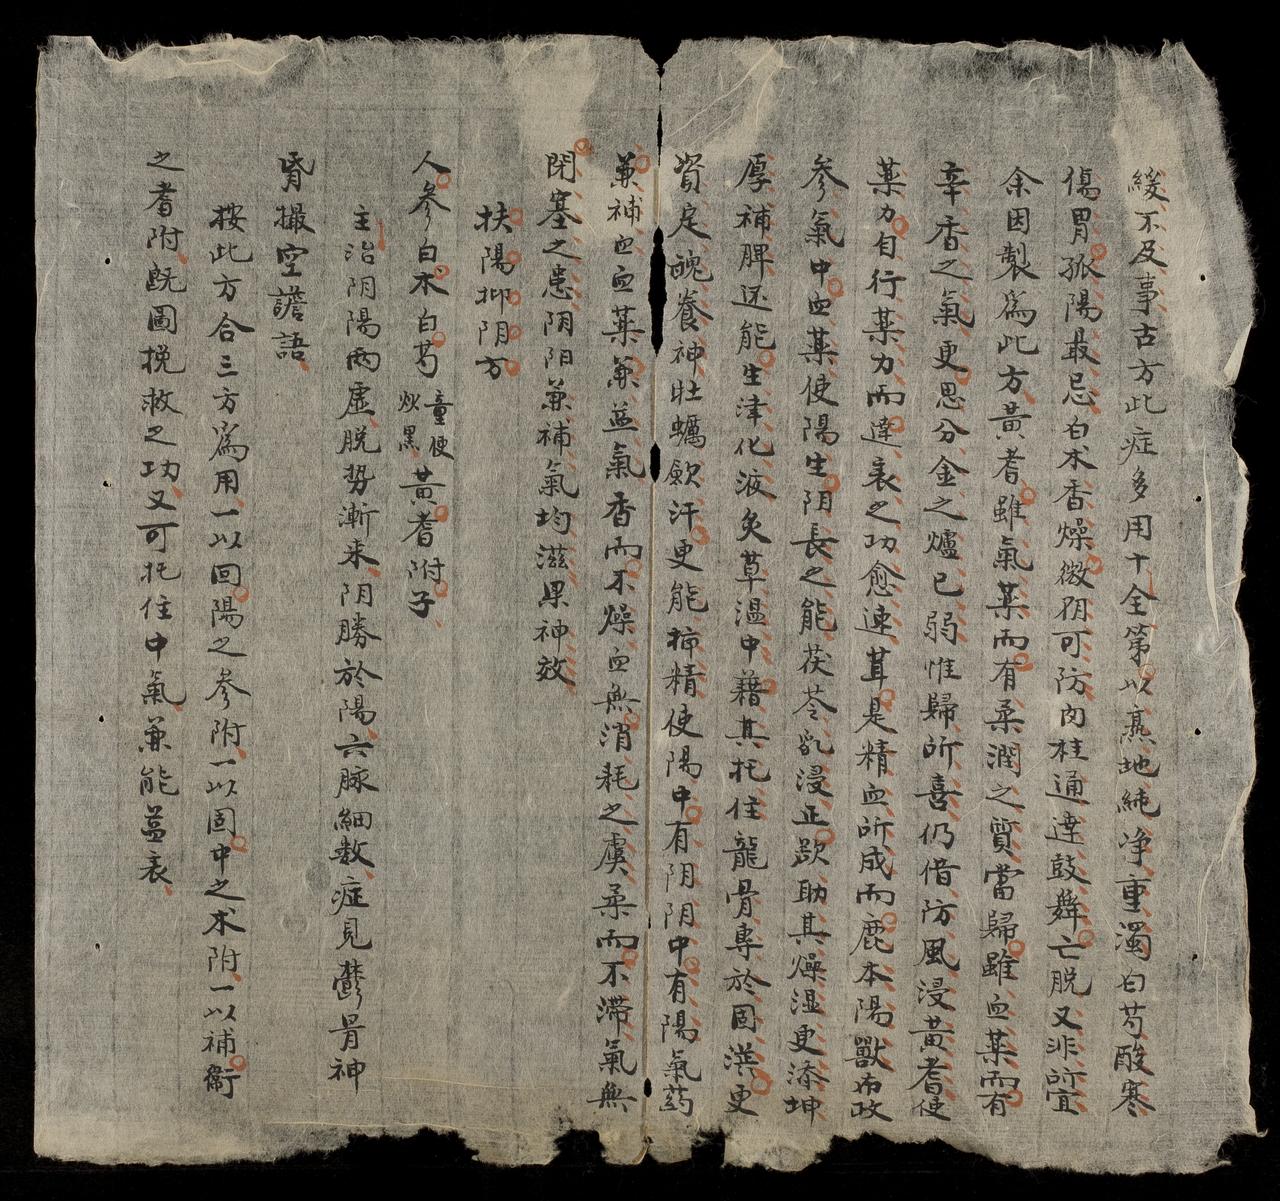 緩不及事古方此症多用十全第以熟地純净重濁白芍酸寒
傷胃孤陽最忌白术香燥微阴可防肉桂通達鼓舞亡脱又非所宜
余因製為此方黃耆雖氣藥而有柔潤之質當歸雖血藥而有
辛香之氣更思分金之爐已弱惟歸所喜仍借防風浸黃耆使
藥力自行藥力而達表之功愈速茸是精血所成而鹿本陽獸布政
參氣中血藥使陽生阴長之能茯苓乳浸正欲助其燥湿更添坤
厚補脾还能生津化液炙草溫中藉其托住龍骨專於固澁更
資定魄養神牡蠣歛汗更能揷精使陽中有阴阴中有陽氣药
兼補血血藥兼益氣香而不燥血無消耗之虞柔而不滯氣無
閉塞之患阴阳兼補氣均滋果神效
扶陽抑阴方
人參白术白芍童便炒黑黃耆附子
主治阴陽兩虛脱势漸来阴勝於陽六脉細数症見鬱冒神
昏撮空譫語
按此方合三方為用一以回陽之參附一以固中之术附一以補衛
之耆附既圖挽救之功又可托住中氣兼能益表